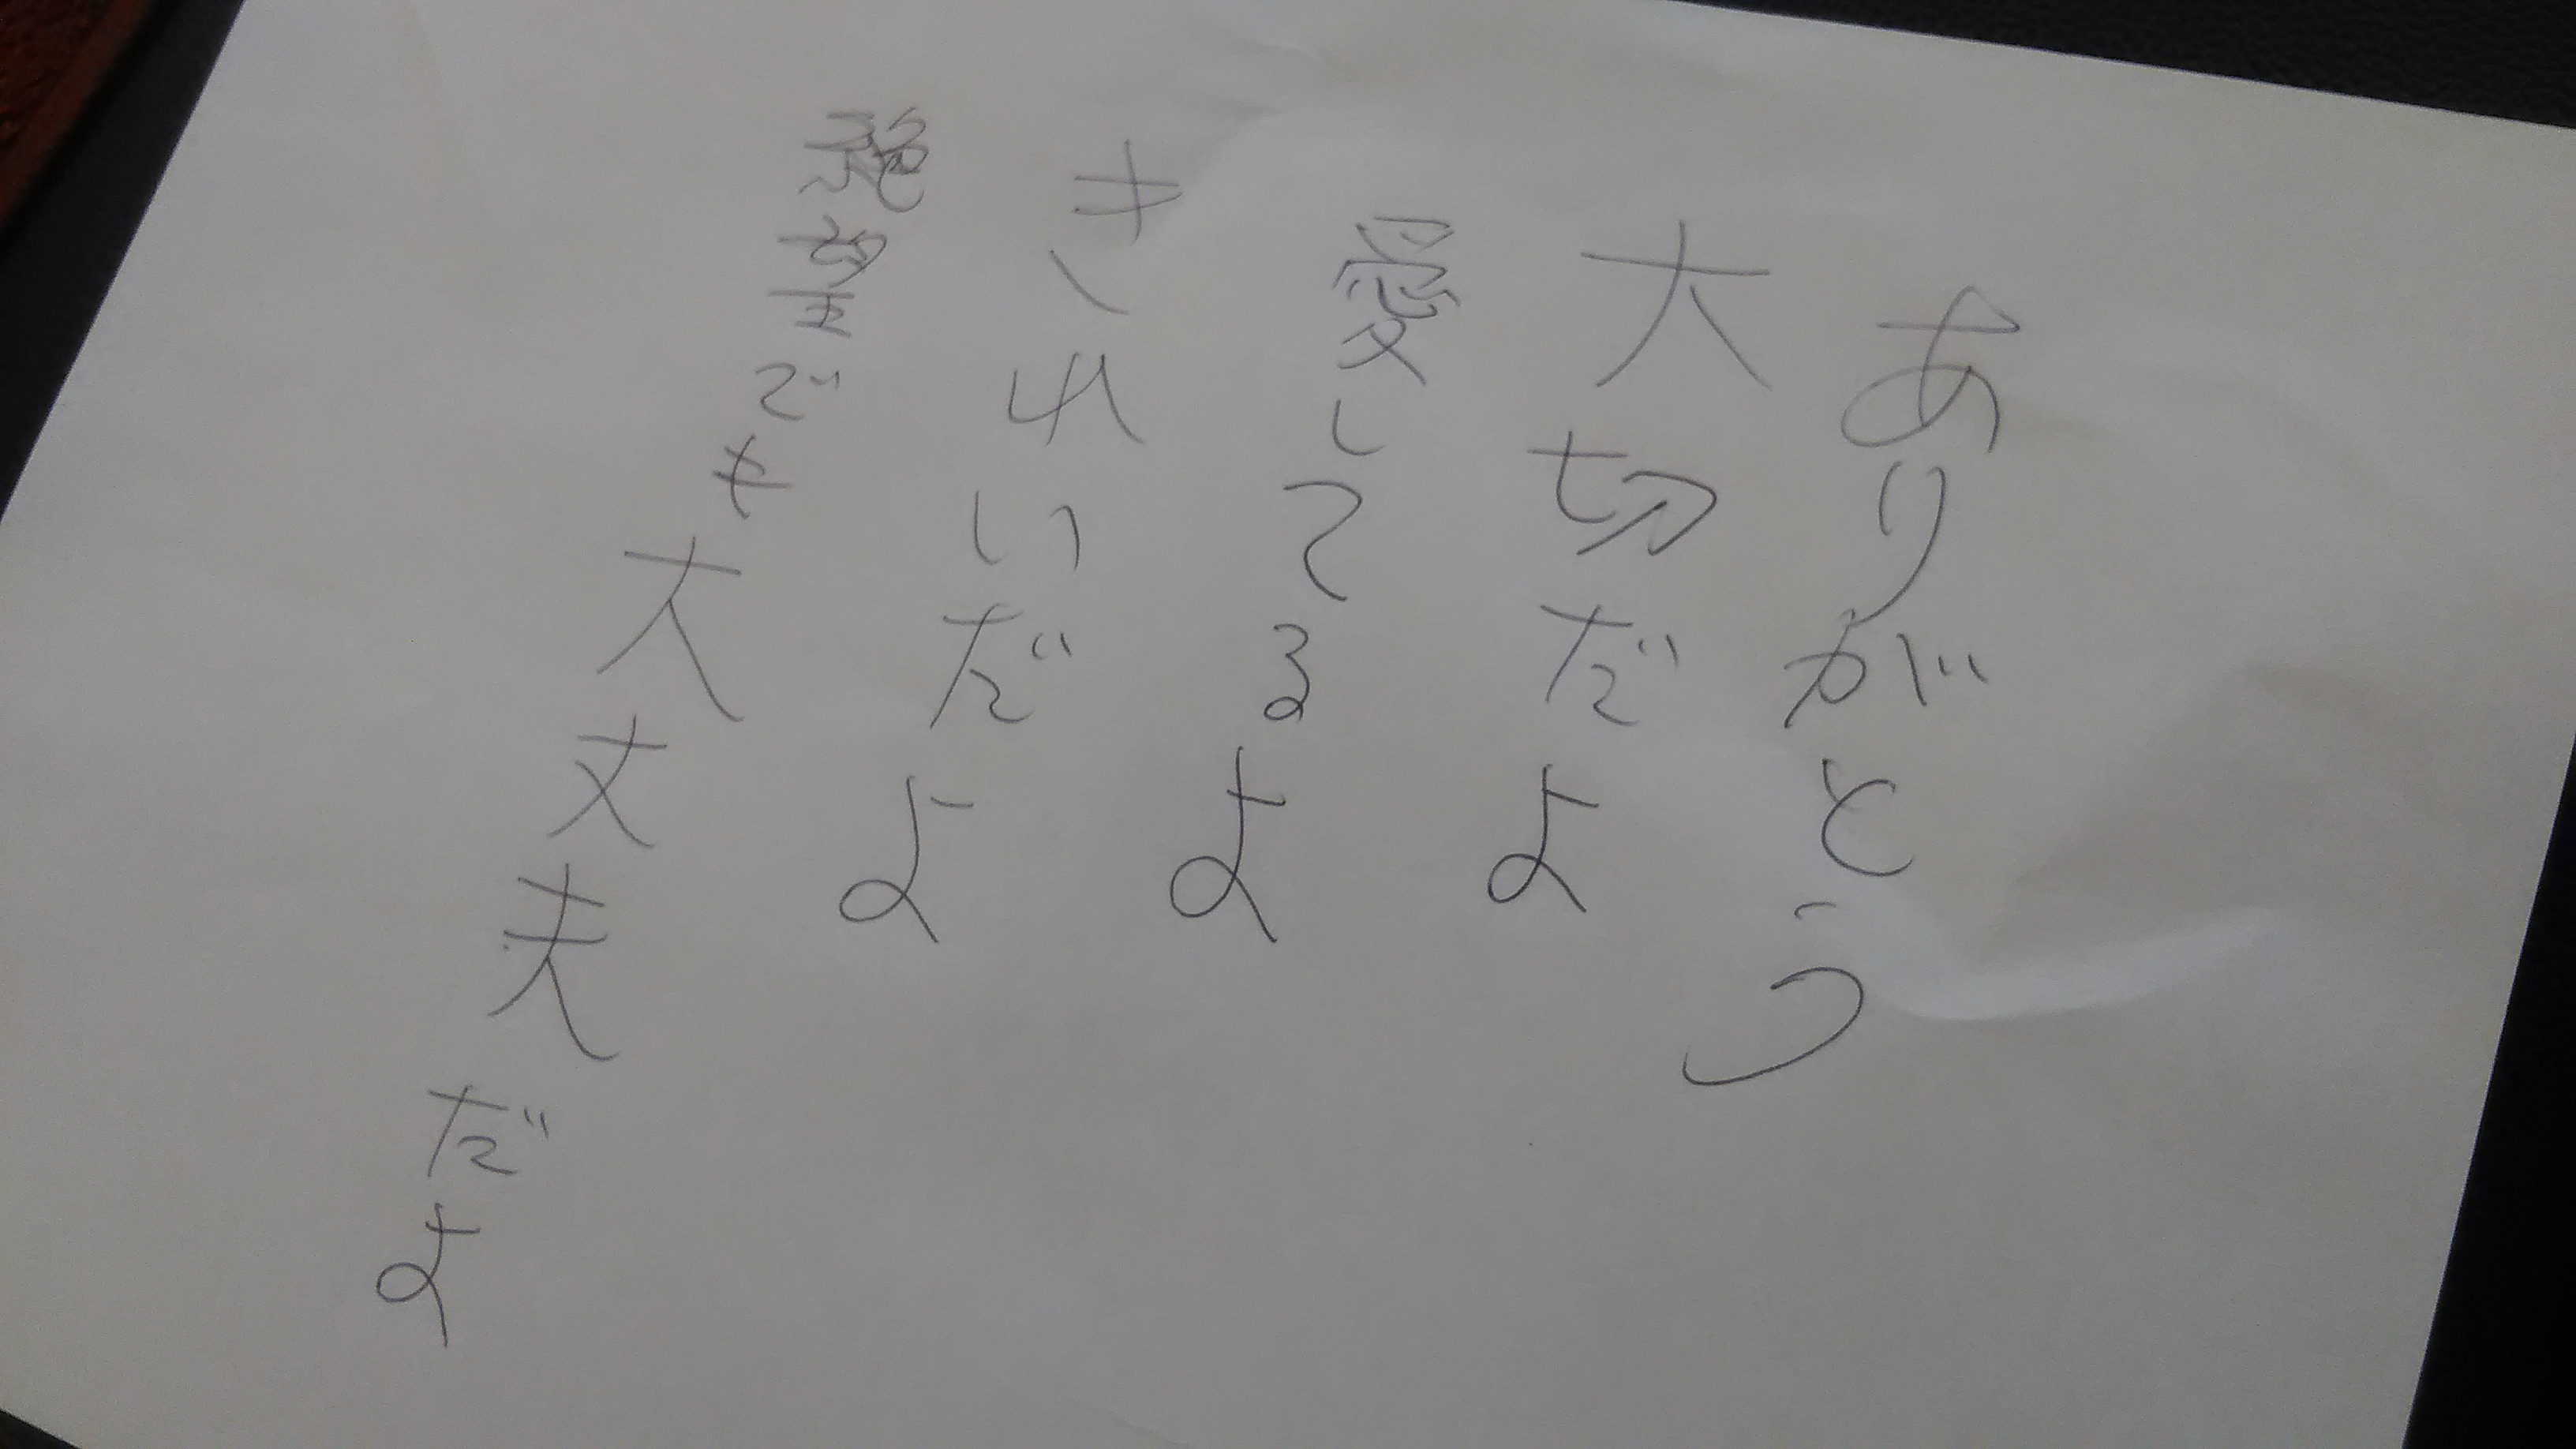 ありがとう
大切だよ
愛してるよ
きれいだよ
絶望でも大丈夫だよ